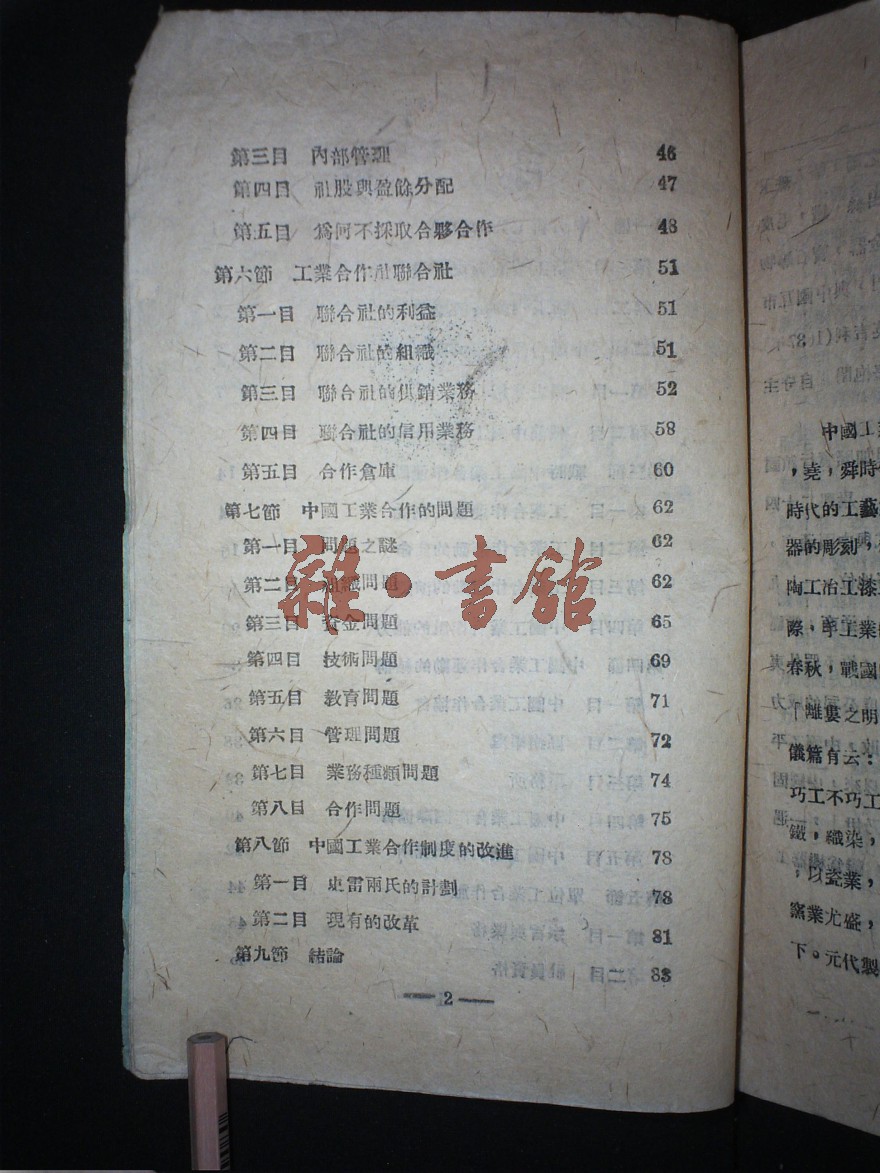 第三目 內部管理 46
第四目 社股與盈餘分配 47
第五目 爲何不採取合夥合作 48
第六節 工業合作社聯合社 51
第一目 聯合社的利益 51
第二目 聯合社的組織 51
第三目 聯合社的供銷業務 52
第四目 聯合社的信用業務 58
第五目 合作倉庫 60
第七節 中國工業合作的問題 62
第一目 問題之謎 62
第二目 組織問題 62
第三目 資金問題 65
第四目 技術問題 69
第五目 教育問題 71
第六目 管理問題 72
第七目 業務種類問題 74
第八目 合作問題 75
第八節 中國工業合作制度的改進 78
第一目 吏雷兩氏的計劃 78
第二目 現有的改革 81
第九節 結論 83
— 2 —
雜·書館
中國工業
，堯，舜時
時代的工藝
器的彫刻，
陶工冶工漆
際，手工業
春秋，戰國
「離婁之明
儀篇有云：
巧工不巧工
鐵，織染，
，以瓷業，
窰業尤盛，
下。元代製